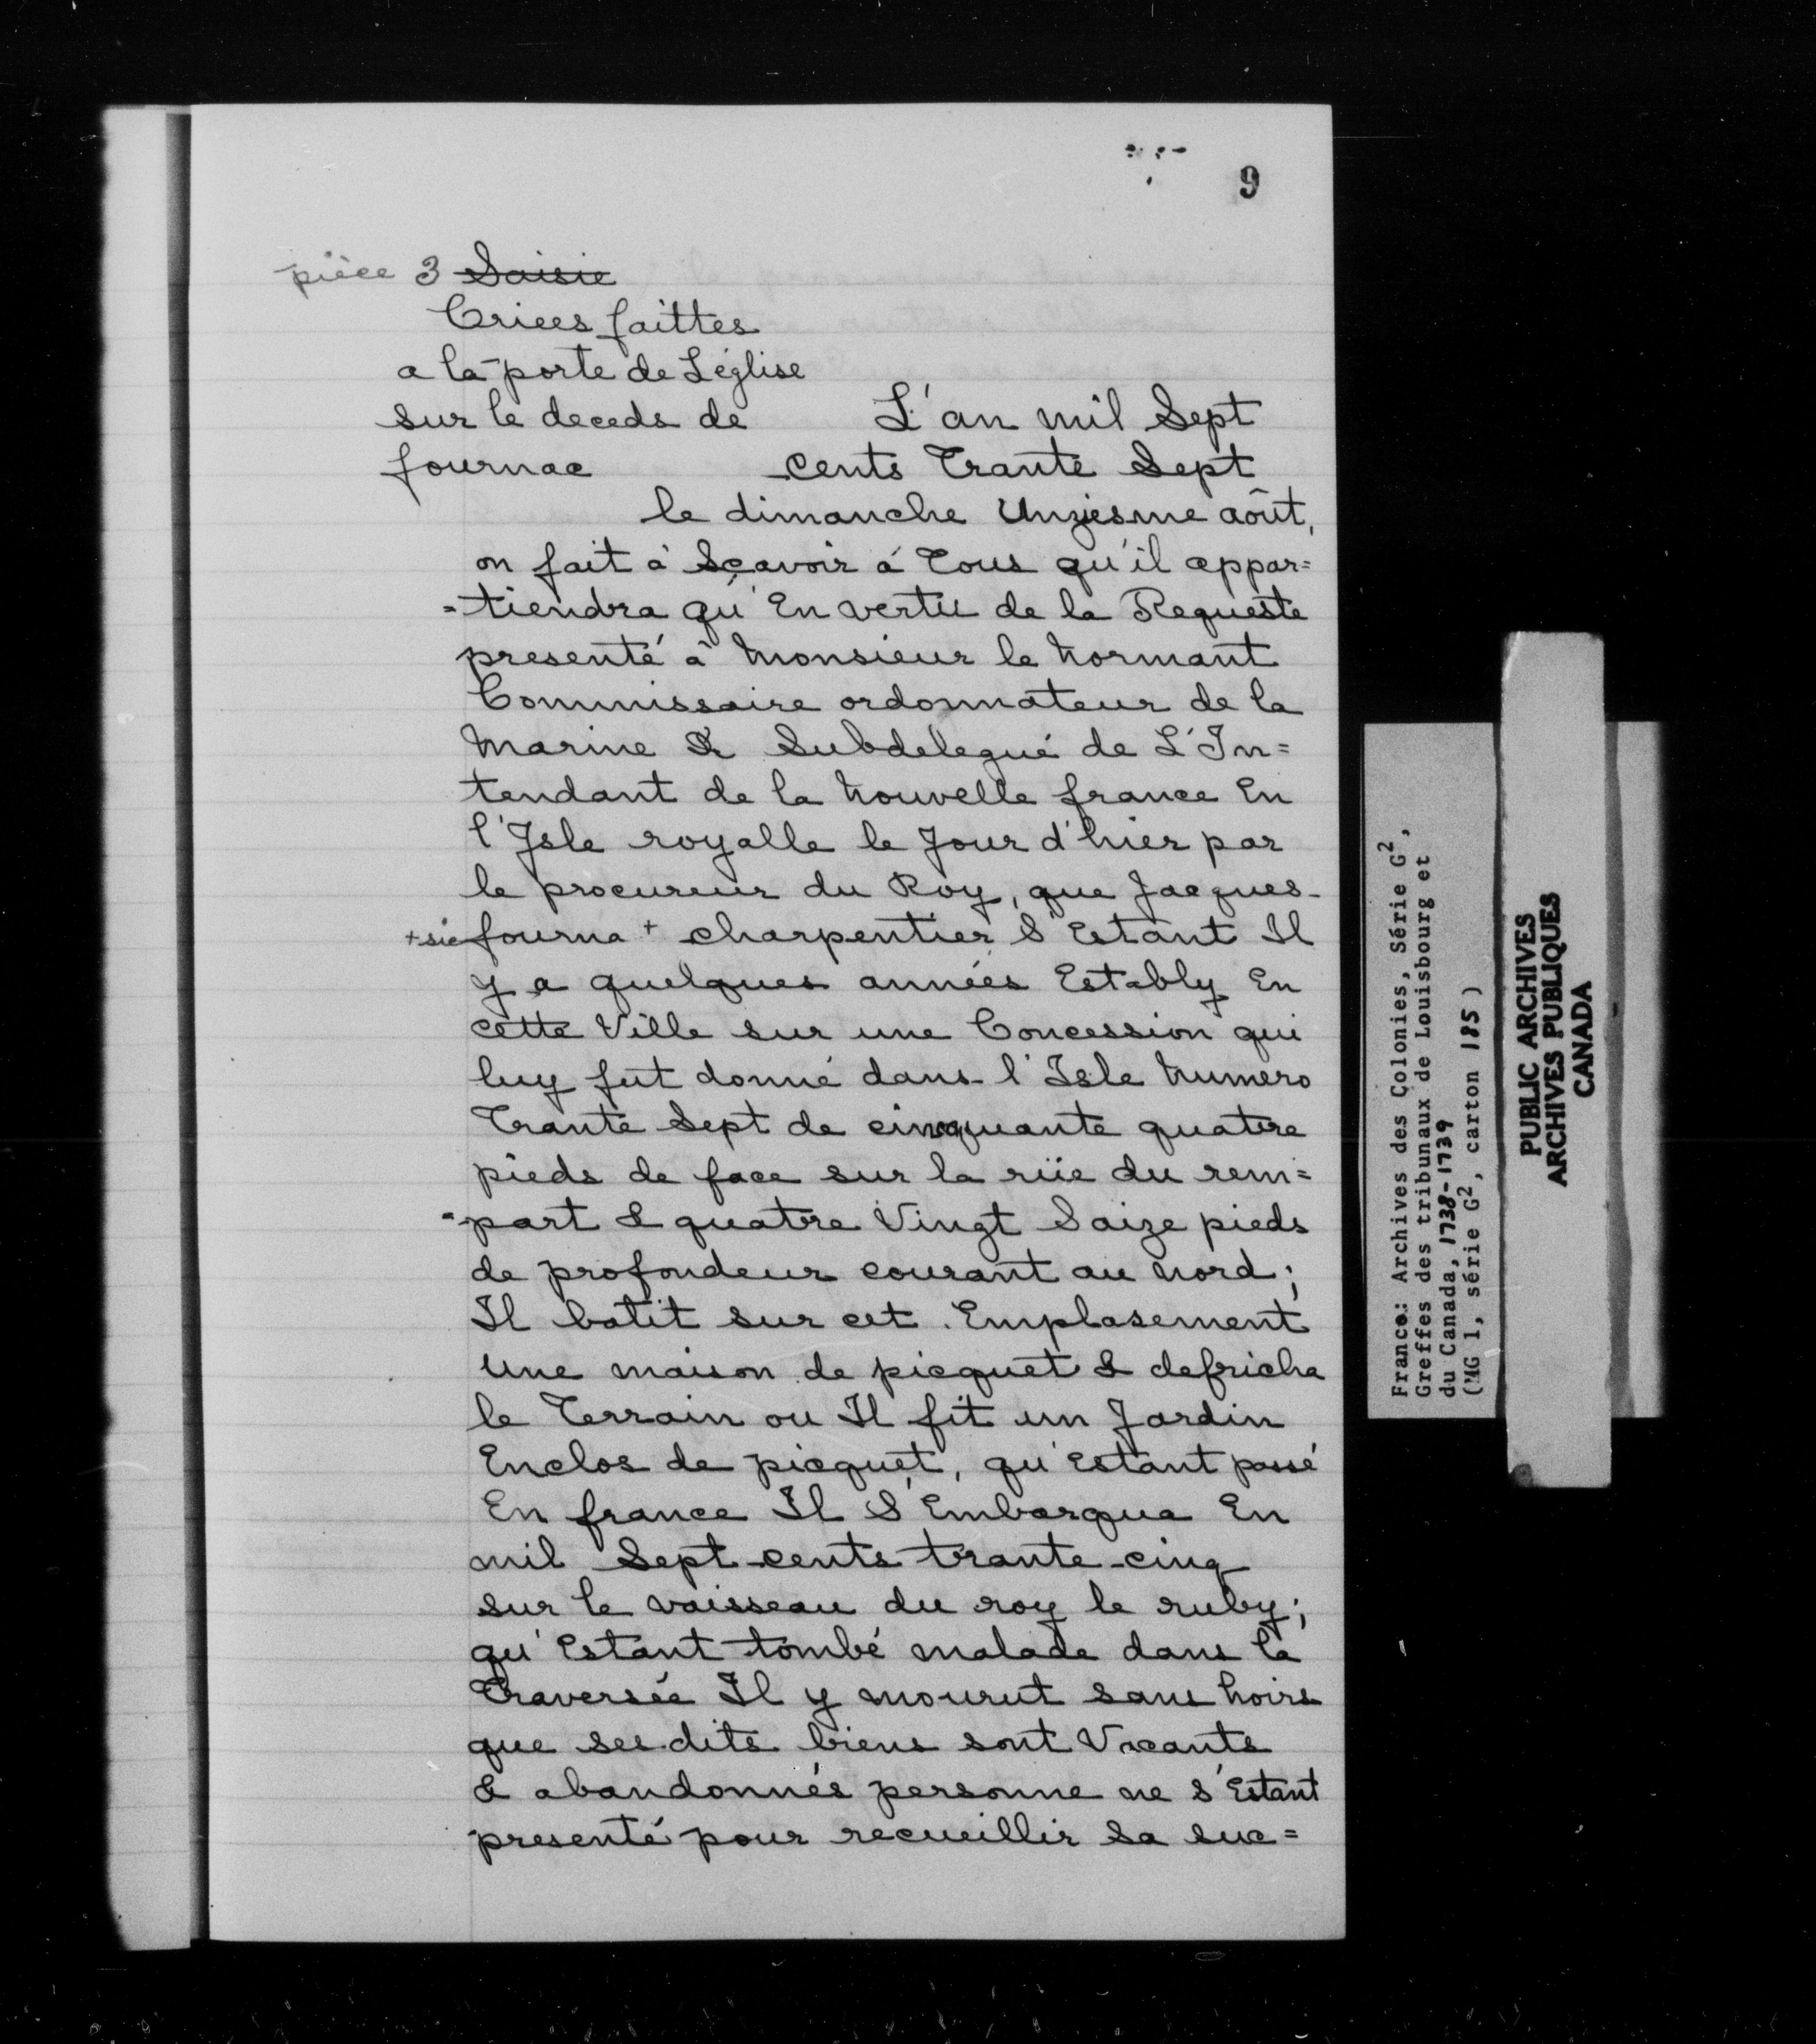 9
pièce 3 Saisie
Criees faittes
a la porte de L'église
sur le deceds de
fournac
L'an mil Sept
cents Trante Sept
le dimanche Unziesme août,
on fait à Sçavoir à Tous qu'il appar=
=tiendra qu'En vertu de la Requeste
presenté à Monsieur le Normant
Commissaire ordonnateur de la
Marine & Subdelegué de L'In=
tendant de la Nouvelle france En
l'Isle royalle le Jour d'hier par
le procureur du Roy, que Jacques
+sic fourna + charpentier S'Estant Il
y a quelques années Estably En
cette Ville sur une Concession qui
luy fut donné dans l'Isle Numero
Trante Sept de cinquante quatre
pieds de face sur la rüe du rem=
=part & quatre Vingt Saize pieds
de profondeur courant au Nord;
Il batit sur cet Emplasement
Une maison de picquet & defricha
le Terrain ou Il fit un Jardin
Enclos de picquet, qu'Estant passé
En france Il S'Embarqua En
mil Sept cents trante cinq
sur le vaisseau du roy le ruby;
qu'Estant tombé malade dans la
Traversée Il y mourut sans hoirs
que ses dits biens sont Vacants
& abandonnés personne ne s'Estant
presenté pour recueillir sa suc=
France: Archives des Colonies, Série G2,
Greffes des tribunaux de Louisbourg et
du Canada, 1738-1739
(MG 1, série G2, carton 185)
PUBLIC ARCHIVES
ARCHIVES PUBLIQUES
CANADA